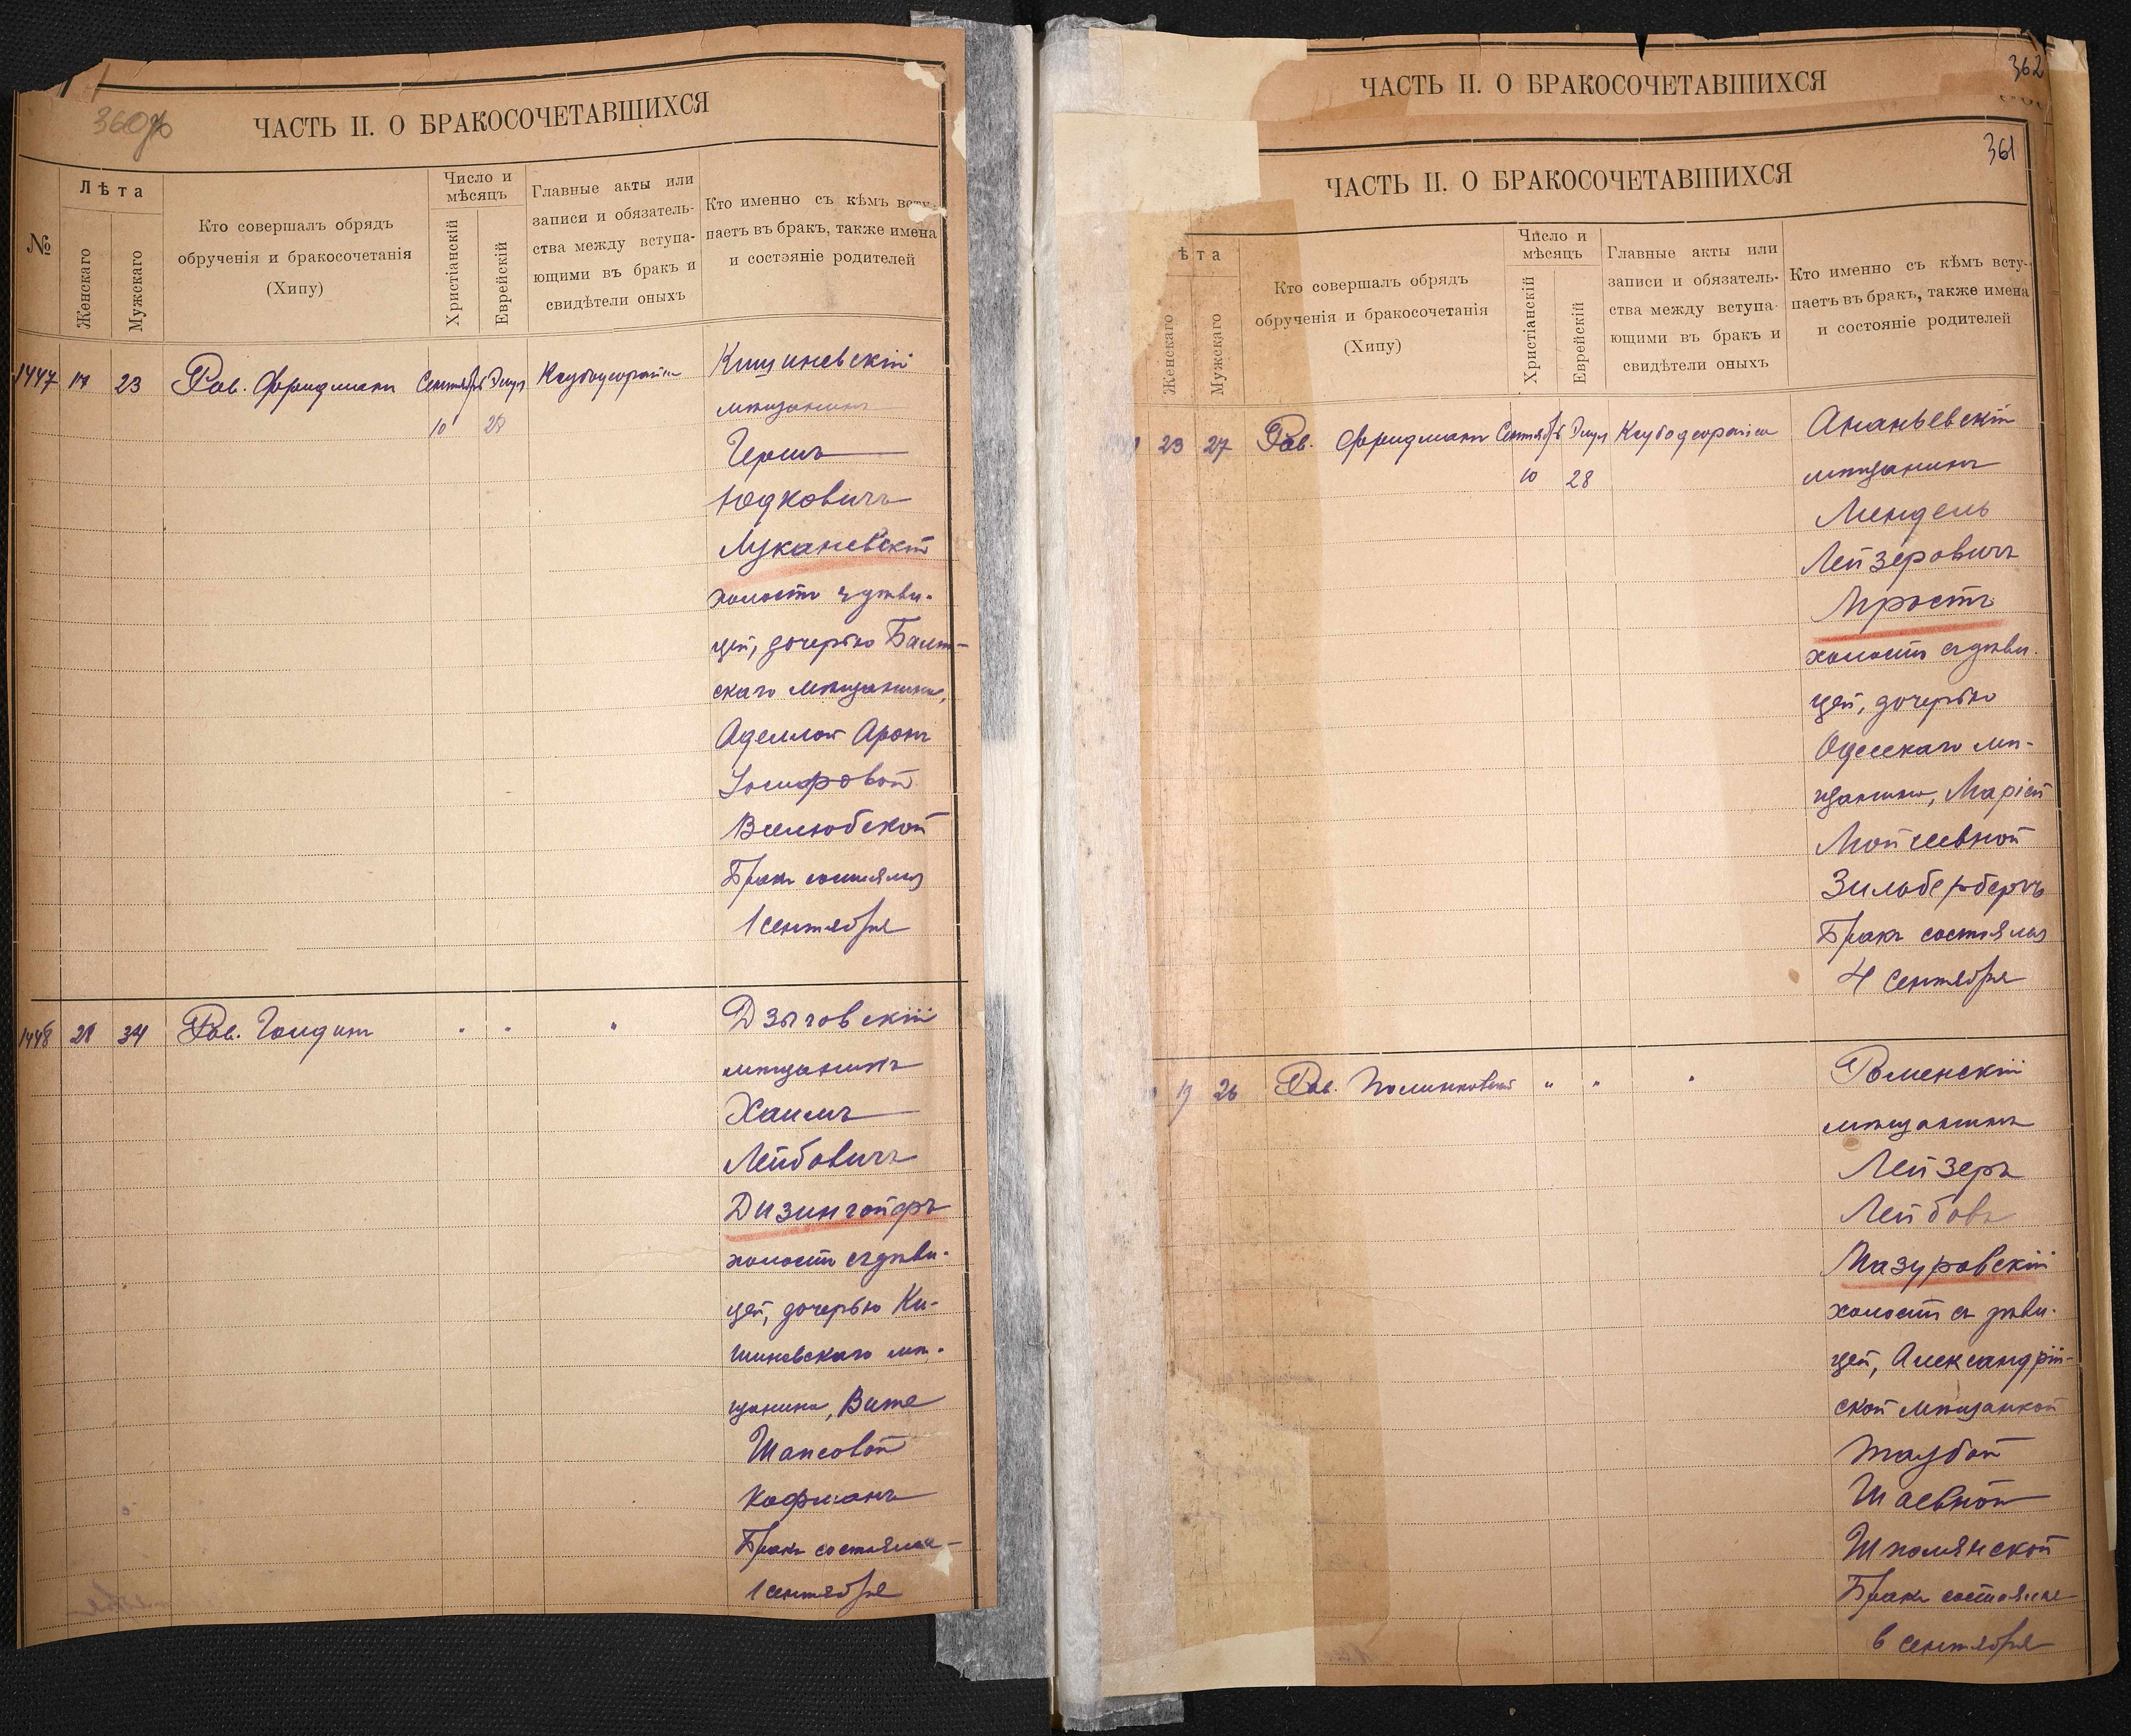 360
ЧАСТЬ II. О БРАКОСОЧЕТАВШИХСЯ
№
Лѣта
Женскаго
Мужскаго
Кто совершалъ обрядъ
обрученія и бракосочетанія
(Хипу)
Число и
мѣсяцъ
Христіанскій
Еврейскій
Главные акты или
записи и обязатель-
ства между вступа-
ющими въ бракъ и
свидѣтели оныхъ
Кто именно съ кѣмъ всту-
паетъ въ бракъ, также имена
и состояніе родителей
1447 17 23 Рав. Фридманъ Сентябрь Элул
10 28
Кишиневскій
мѣщанинъ
Гершъ
Юдковичъ
Лукачевскій
холостъ съ дѣви-
цей, дочерью Балт-
скаго мѣщанина,
Аделлой Аронъ
Іосифовой
Вселюбской
Бракъ состоялся
1 сентября
1448 28 34 Рав. Голдинъ " " "
Дзыговскій
мѣщанинъ
Хаимъ
Лейбовичъ
Дизингофъ
холостъ съ дѣви-
цей, дочерью Ки-
шиневскаго мѣ-
щанина, Витей
Шапсовой
Кофманъ
Бракъ состоялся
1 сентября
362
ЧАСТЬ II. О БРАКОСОЧЕТАВШИХСЯ
361
ЧАСТЬ II. О БРАКОСОЧЕТАВШИХСЯ
ѣта
Женскаго
Мужскаго
Кто совершалъ обрядъ
обрученія и бракосочетанія
(Хипу)
Число и
мѣсяцъ
Христіанскій
Еврейскій
Главные акты или
записи и обязатель-
ства между вступа-
ющими въ бракъ и
свидѣтели оныхъ
Кто именно съ кѣмъ всту-
паетъ въ бракъ, также имена
и состояніе родителей
23 27 Рав. Фридманъ Сентябрь Элул
10 28
Ананьевскій
мѣщанинъ
Мендель
Лейзеровичъ
Мростъ
холостъ съ дѣви-
цей, дочерью
Одесскаго мѣ-
щанина, Маріей
Мойсеевной
Зильбербергъ
Бракъ состоялся
4 сентября
19 26 Рав. Полинковскій " " "
Роменскій
мѣщанинъ
Лейзеръ
Лейбовъ
Мазуровскій
холостъ съ дѣви-
цей, Александрій-
ской мѣщанкой
Таубой
Шаевной
Шполянской
Бракъ состоялся
6 сентября